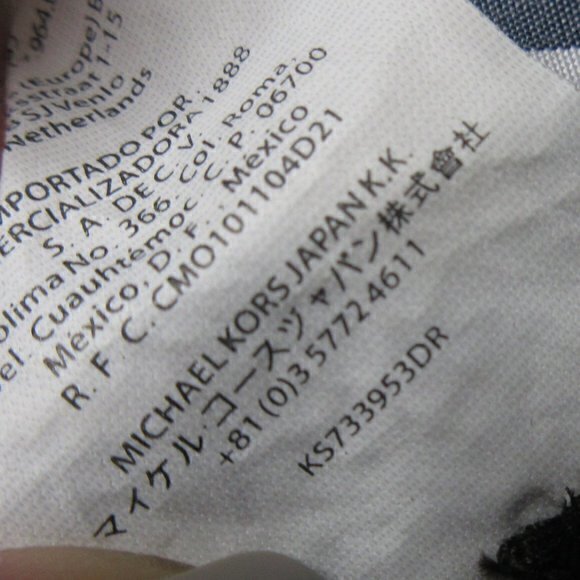 964
(Europe) B
straat 1-15
SJ Venlo
Netherlands
IMPORTADO POR:
ERCIALIZADORA 1888
S. A. DE C. V.
olima No. 366, Col. Roma,
el. Cuauhtemoc C. P. 06700
México, D. F., México
R. F. C. CMO101104D21
MICHAEL KORS JAPAN K.K.
マイケル・コースジャパン株式會社
+81 (0)3 5772 4611
KS733953DR